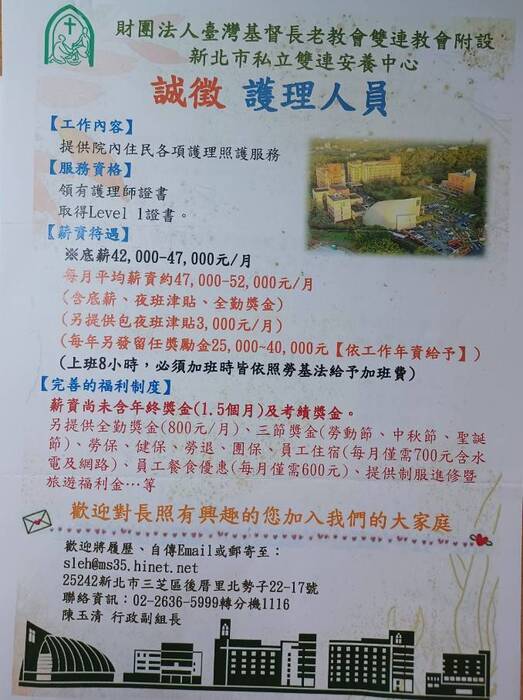 財團法人臺灣基督長老教會雙連教會附設
新北市私立雙連安養中心
誠徵 護理人員
【工作內容】
提供院內住民各項護理照護服務
【服務資格】
領有護理師證書
取得Level 1證書。
【薪資待遇】
※底薪42,000-47,000元/月
每月平均薪資約47,000-52,000元/月
(含底薪、夜班津貼、全勤獎金)
(另提供包夜班津貼3,000元/月)
(每年另發留任獎勵金25,000~40,000元【依工作年資給予】)
(上班8小時，必須加班時皆依照勞基法給予加班費)
【完善的福利制度】
薪資尚未含年終獎金(1.5個月)及考績獎金。
另提供全勤獎金(800元/月)、三節獎金(勞動節、中秋節、聖誕
節)、勞保、健保、勞退、團保、員工住宿(每月僅需700元含水
電及網路)、員工餐食優惠(每月僅需600元)、提供制服進修暨
旅遊福利金…等
歡迎對長照有興趣的您加入我們的大家庭
歡迎將履歷、自傳Email或郵寄至：
sleh@ms35.hinet.net
25242新北市三芝區後厝里北勢子22-17號
聯絡資訊：02-2636-5999轉分機1116
陳玉清 行政副組長